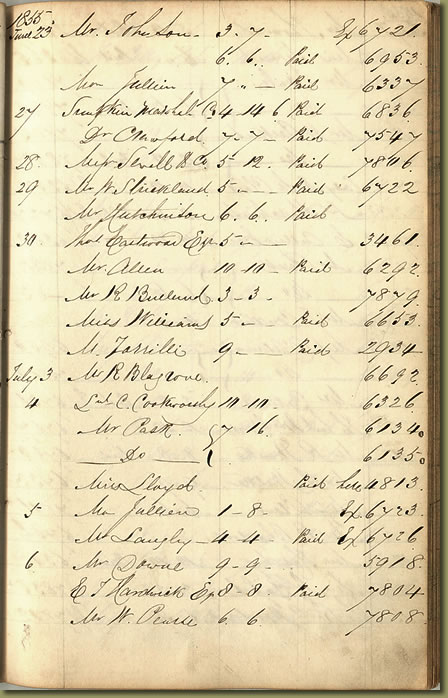 1855
June 23 Mr. Johnson - 3. 7 - Ex 6721
6. 6. Paid 6953
Mon Jullien 7 " - Paid 6337
27 Simpkin Marshal Co 4 14 6 Paid 6836
Dr Crawford 7 - 7 - Paid 7547
28 & Co. 5 12. Paid 7846
29 Mr W Strickland 5 - - Paid 6722
Mr Hutchinson 6. 6. Paid
30 Thos Eastwood Esq 5 - - 3461
Mr. Allen 10 - 10 - Paid 6292
Mr R 3 - 3 - 7879
Miss Williams 5 - Paid 6653
M. 9 - - Paid 2934
July 3 Mr R Blagrove. 6692
4 C. 10 10 - 6326
Mr Pask 7 16 6134
Do 6135
Miss Lloyd. Paid 4813
5 Mon Jullien 1 - 8 - Ex 6723
Mr Langley - 4 - 4 - Paid Ex 6726
6 Mr Downe 9 - 9 - 5918
E T Hardwick Esq 8 - 8 - Paid 7804
Mr W. Pearle 6. 6 7808